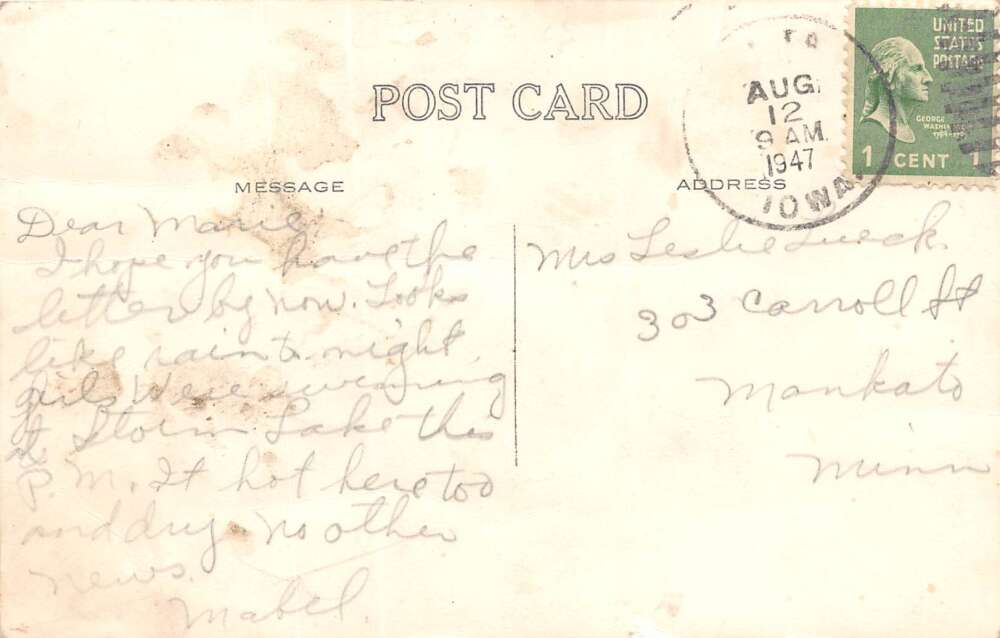 POST CARD
AUG
12
9 AM
1947
IOWA
UNITED
STATES
POSTAGE
GEORGE
WASHINGTON
1 CENT 1
MESSAGE
ADDRESS
Dear Marie,
I hope you have the
letter by now. Looks
like rain to night.
girls were swimming
at Storm Lake this
P.M. It hot here too
and dry. No other
news.
Mabel.
Mrs Leslie Lueck
303 Carroll St
Mankato
Minn